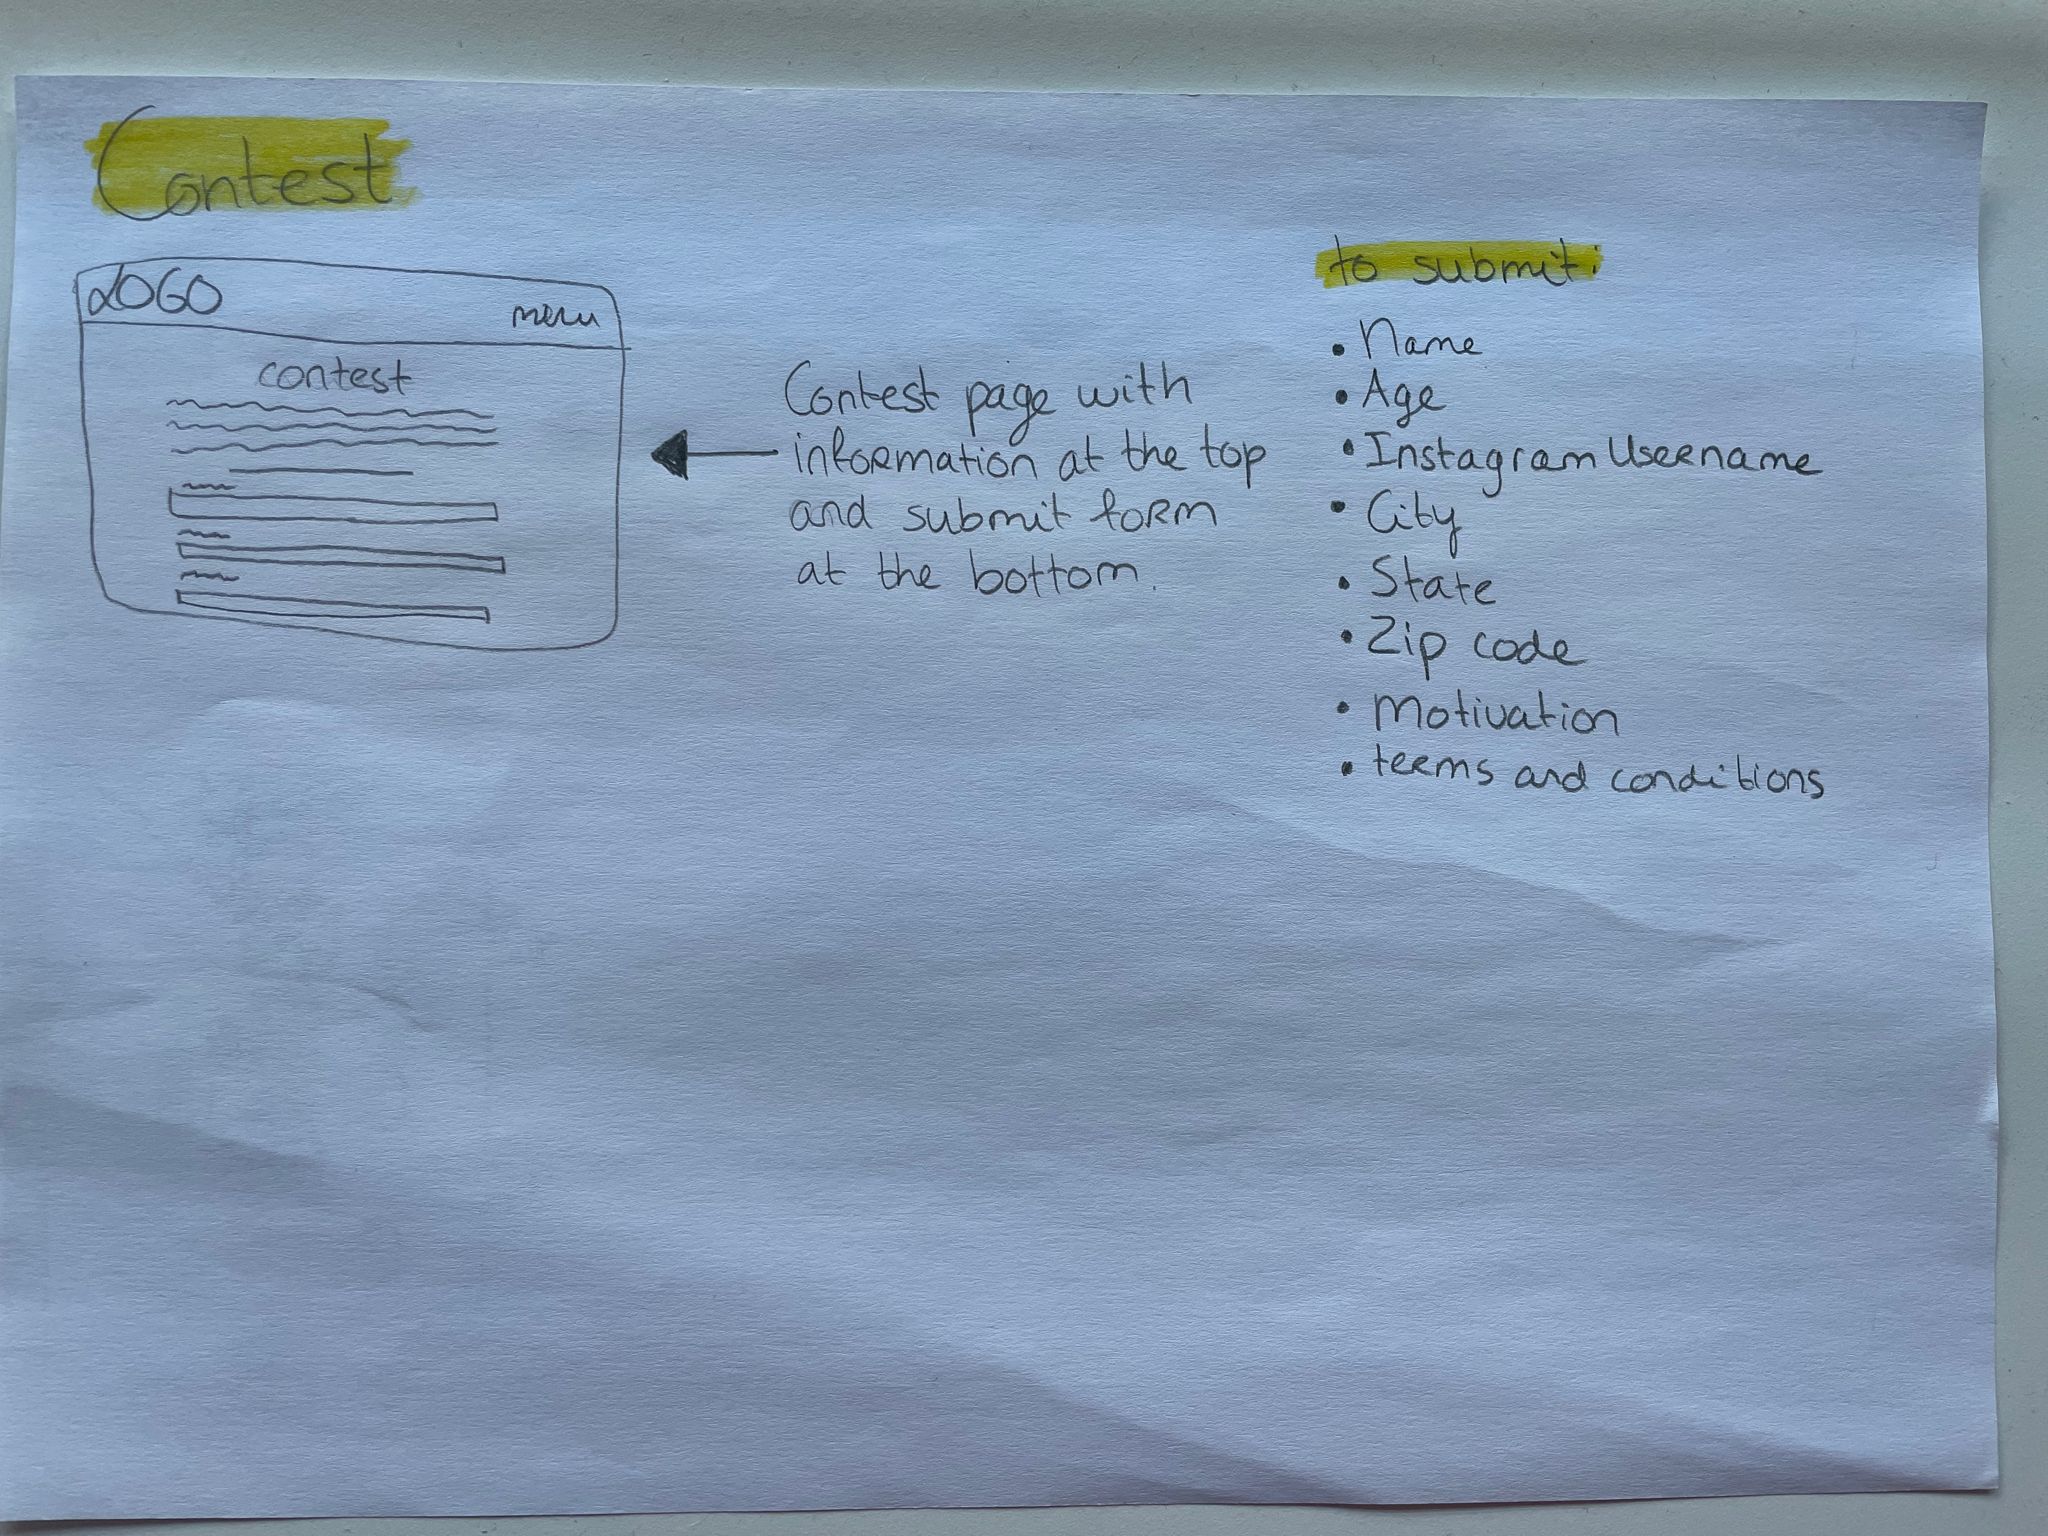 Contest
LOGO
menu
contest
Contest page with
information at the top
and submit form
at the bottom.
to submit:
• Name
• Age
• Instagram Username
• City
• State
• Zip code
• Motivation
• terms and conditions